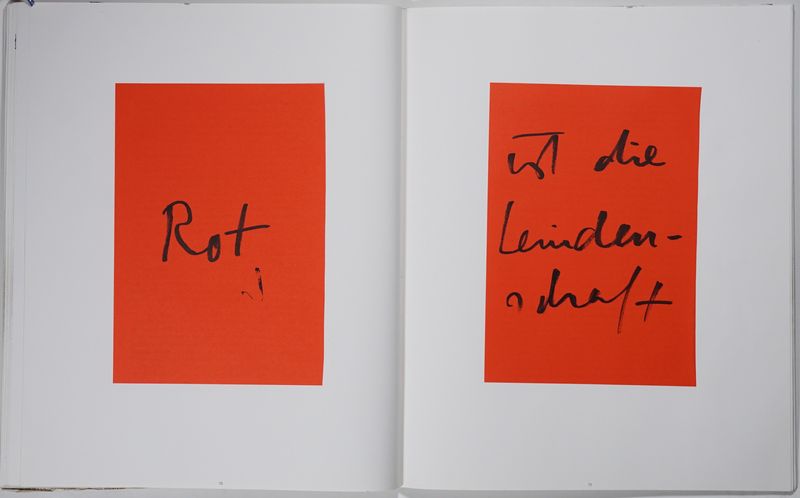 Rot
ist die
Leiden-
schaft